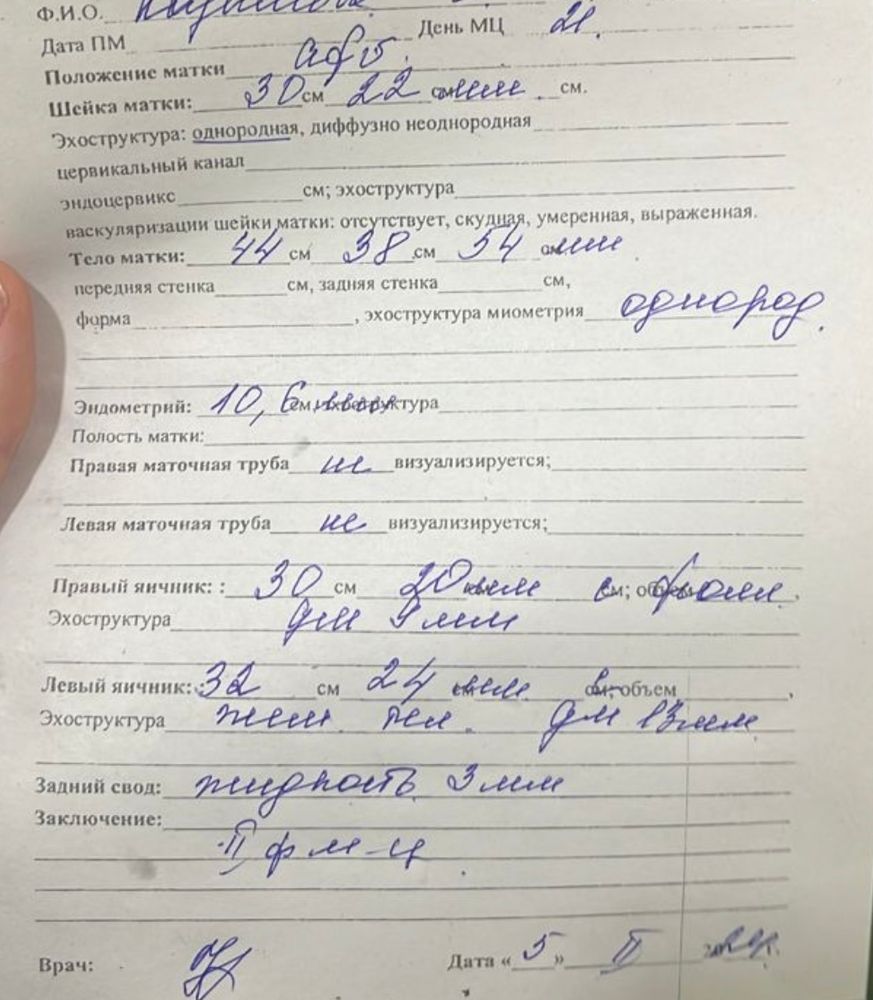 Ф.И.О.
Дата ПМ День МЦ 21.
Положение матки
Шейка матки: 30 см 22 см мм см.
Эхоструктура: однородная, диффузно неоднородная
цервикальный канал
эндоцервикс см; эхоструктура
васкуляризации шейки матки: отсутствует, скудная, умеренная, выраженная.
Тело матки: 44 см 38 см 54 см мм
передняя стенка см, задняя стенка см,
форма , эхоструктура миометрия однород.
Эндометрий: 10,6 см, мм эхоструктура
Полость матки:
Правая маточная труба не визуализируется;
Левая маточная труба не визуализируется;
Правый яичник: : 30 см 20 мм см; объем фолл.,
Эхоструктура дм 9 мм
Левый яичник: : 32 см 24 см мм объем ,
Эхоструктура жел тел. дм 13 мм
Задний свод: жидкость 3 мм
Заключение:
II ф м-ц
Врач: Дата « 5 » II